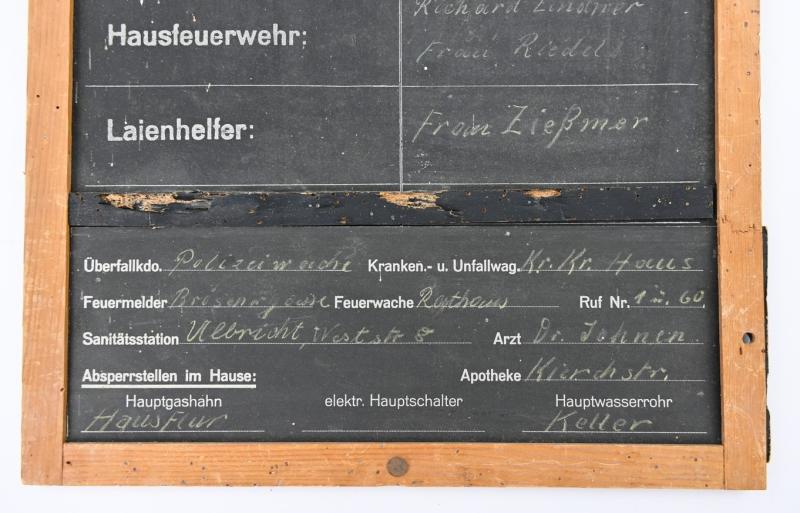 Richard Lindner
Hausfeuerwehr:
Frau Riedel
Laienhelfer: Frau Zießmer
Überfallkdo. Polizeiwache Kranken.- u. Unfallwag. Kr. Kr. Haus
Feuermelder Feuerwache Rathaus Ruf Nr. 1 u. 60
Sanitätsstation Ulbricht, Weststr 8 Arzt Dr. Johnen
Absperrstellen im Hause: Apotheke Kierchstr.
Hauptgashahn elektr. Hauptschalter Hauptwasserrohr
Hausflur Keller